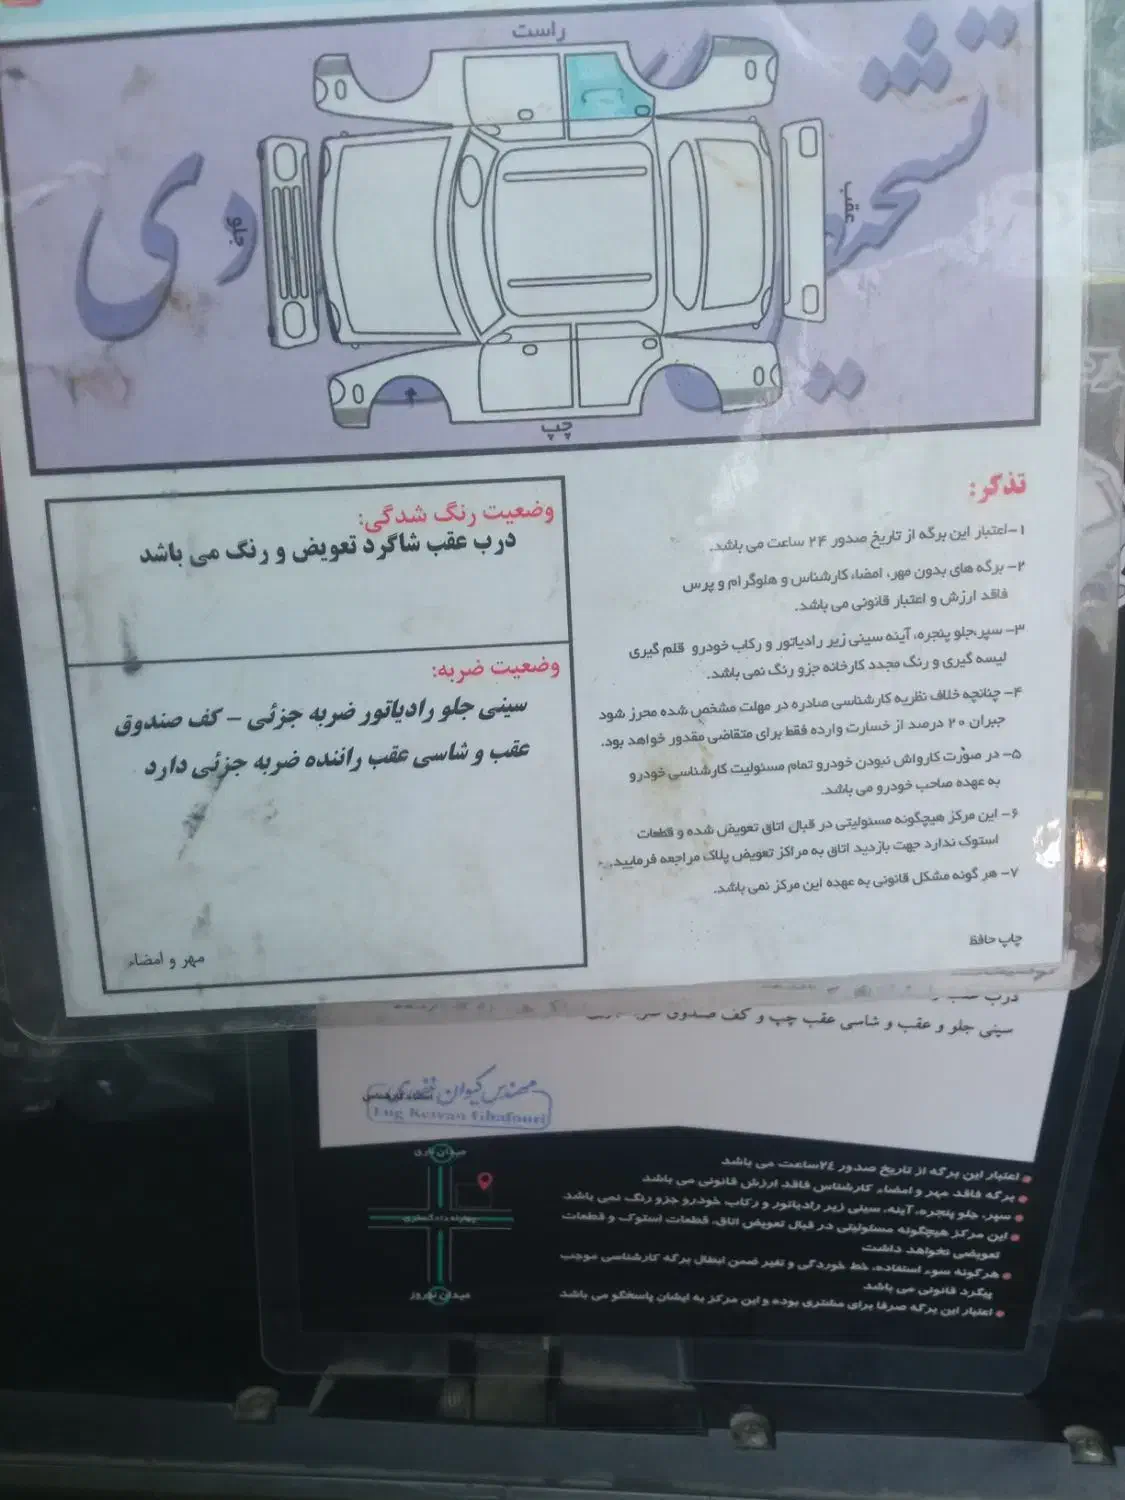 راست
تشخیص
دی
جلو
عقب
چپ
وضعیت رنگ شدگی:
درب عقب شاگرد تعویض و رنگ می باشد
وضعیت ضربه:
سینی جلو رادیاتور ضربه جزئی - کف صندوق
عقب و شاسی عقب راننده ضربه جزئی دارد
مهر و امضاء
تذکر:
۱-اعتبار این برگه از تاریخ صدور ۲۴ ساعت می باشد.
۲- برگه های بدون مهر، امضاء کارشناس و هلوگرام و پرس
فاقد ارزش و اعتبار قانونی می باشد.
۳- سپر،جلو پنجره، آینه سینی زیر رادیاتور و رکاب خودرو قلم گیری
لیسه گیری و رنگ مجدد کارخانه جزو رنگ نمی باشد.
۴- چنانچه خلاف نظریه کارشناسی صادره در مهلت مشخص شده محرز شود
جبران ۲۰ درصد از خسارت وارده فقط برای متقاضی مقدور خواهد بود.
۵- در صورت کارواش نبودن خودرو تمام مسئولیت کارشناسی خودرو
به عهده صاحب خودرو می باشد.
۶- این مرکز هیچگونه مسئولیتی در قبال اتاق تعویض شده و قطعات
استوک ندارد جهت بازدید اتاق به مراکز تعویض پلاک مراجعه فرمایید.
۷- هر گونه مشکل قانونی به عهده این مرکز نمی باشد.
چاپ حافظ
درب عقب
سینی جلو و عقب و شاسی عقب چپ و کف صندوق
مهندس کیوان غفوری
امضاء کارشناس
Eng Keivan Ghafouri
میدان
چهارراه دادگستری
میدان نوروز
اعتبار این برگه از تاریخ صدور ۲۴ساعت می باشد
برگه فاقد مهر و امضاء کارشناس فاقد ارزش قانونی می باشد
سپر، جلو پنجره، آینه، سینی زیر رادیاتور و رکاب خودرو جزو رنگ نمی باشد
این مرکز هیچگونه مسئولیتی در قبال تعویض اتاق، قطعات استوک و قطعات
تعویضی نخواهد داشت
هرگونه سوء استفاده، خط خوردگی و تغیر ضمن ابطال برگه کارشناسی موجب
پیگرد قانونی می باشد
اعتبار این برگه صرفا برای مشتری بوده و این مرکز به ایشان پاسخگو می باشد